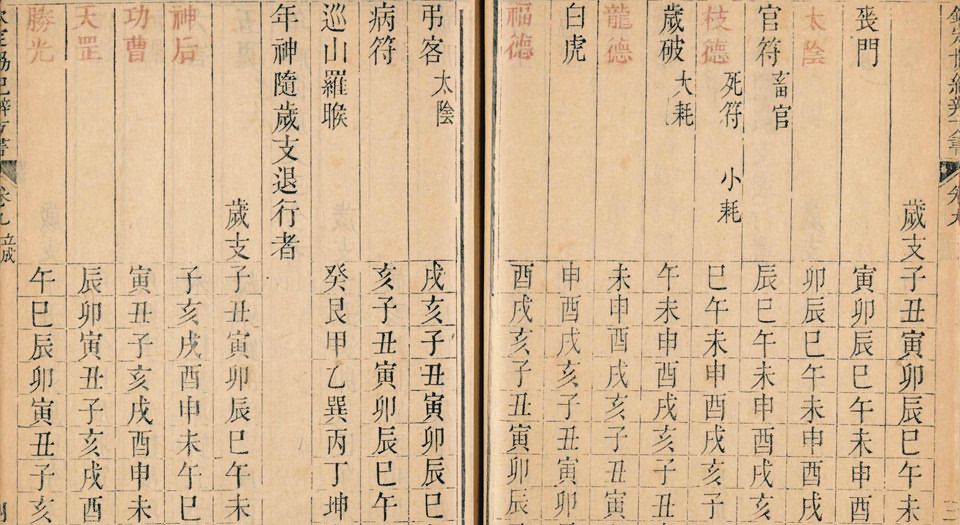 歲支 子丑寅卯辰巳午未
喪門 寅卯辰巳午未申酉
太陰 卯辰巳午未申酉戌
官符 畜官 辰巳午未申酉戌亥
枝德 死符 小耗 巳午未申酉戌亥子
歲破 大耗 午未申酉戌亥子丑
龍德 未申酉戌亥子丑寅
白虎 申酉戌亥子丑寅卯
福德 酉戌亥子丑寅卯辰
弔客 太陰 戌亥子丑寅卯辰巳
病符 亥子丑寅卯辰巳午
巡山羅睺 癸艮甲乙巽丙丁坤
年神隨歲支退行者
歲支 子丑寅卯辰巳午未
神后 子亥戌酉申未午巳
功曹 寅丑子亥戌酉申未
天罡 辰卯寅丑子亥戌酉
勝光 午巳辰卯寅丑子亥
定協紀辨方書 卷九 立成